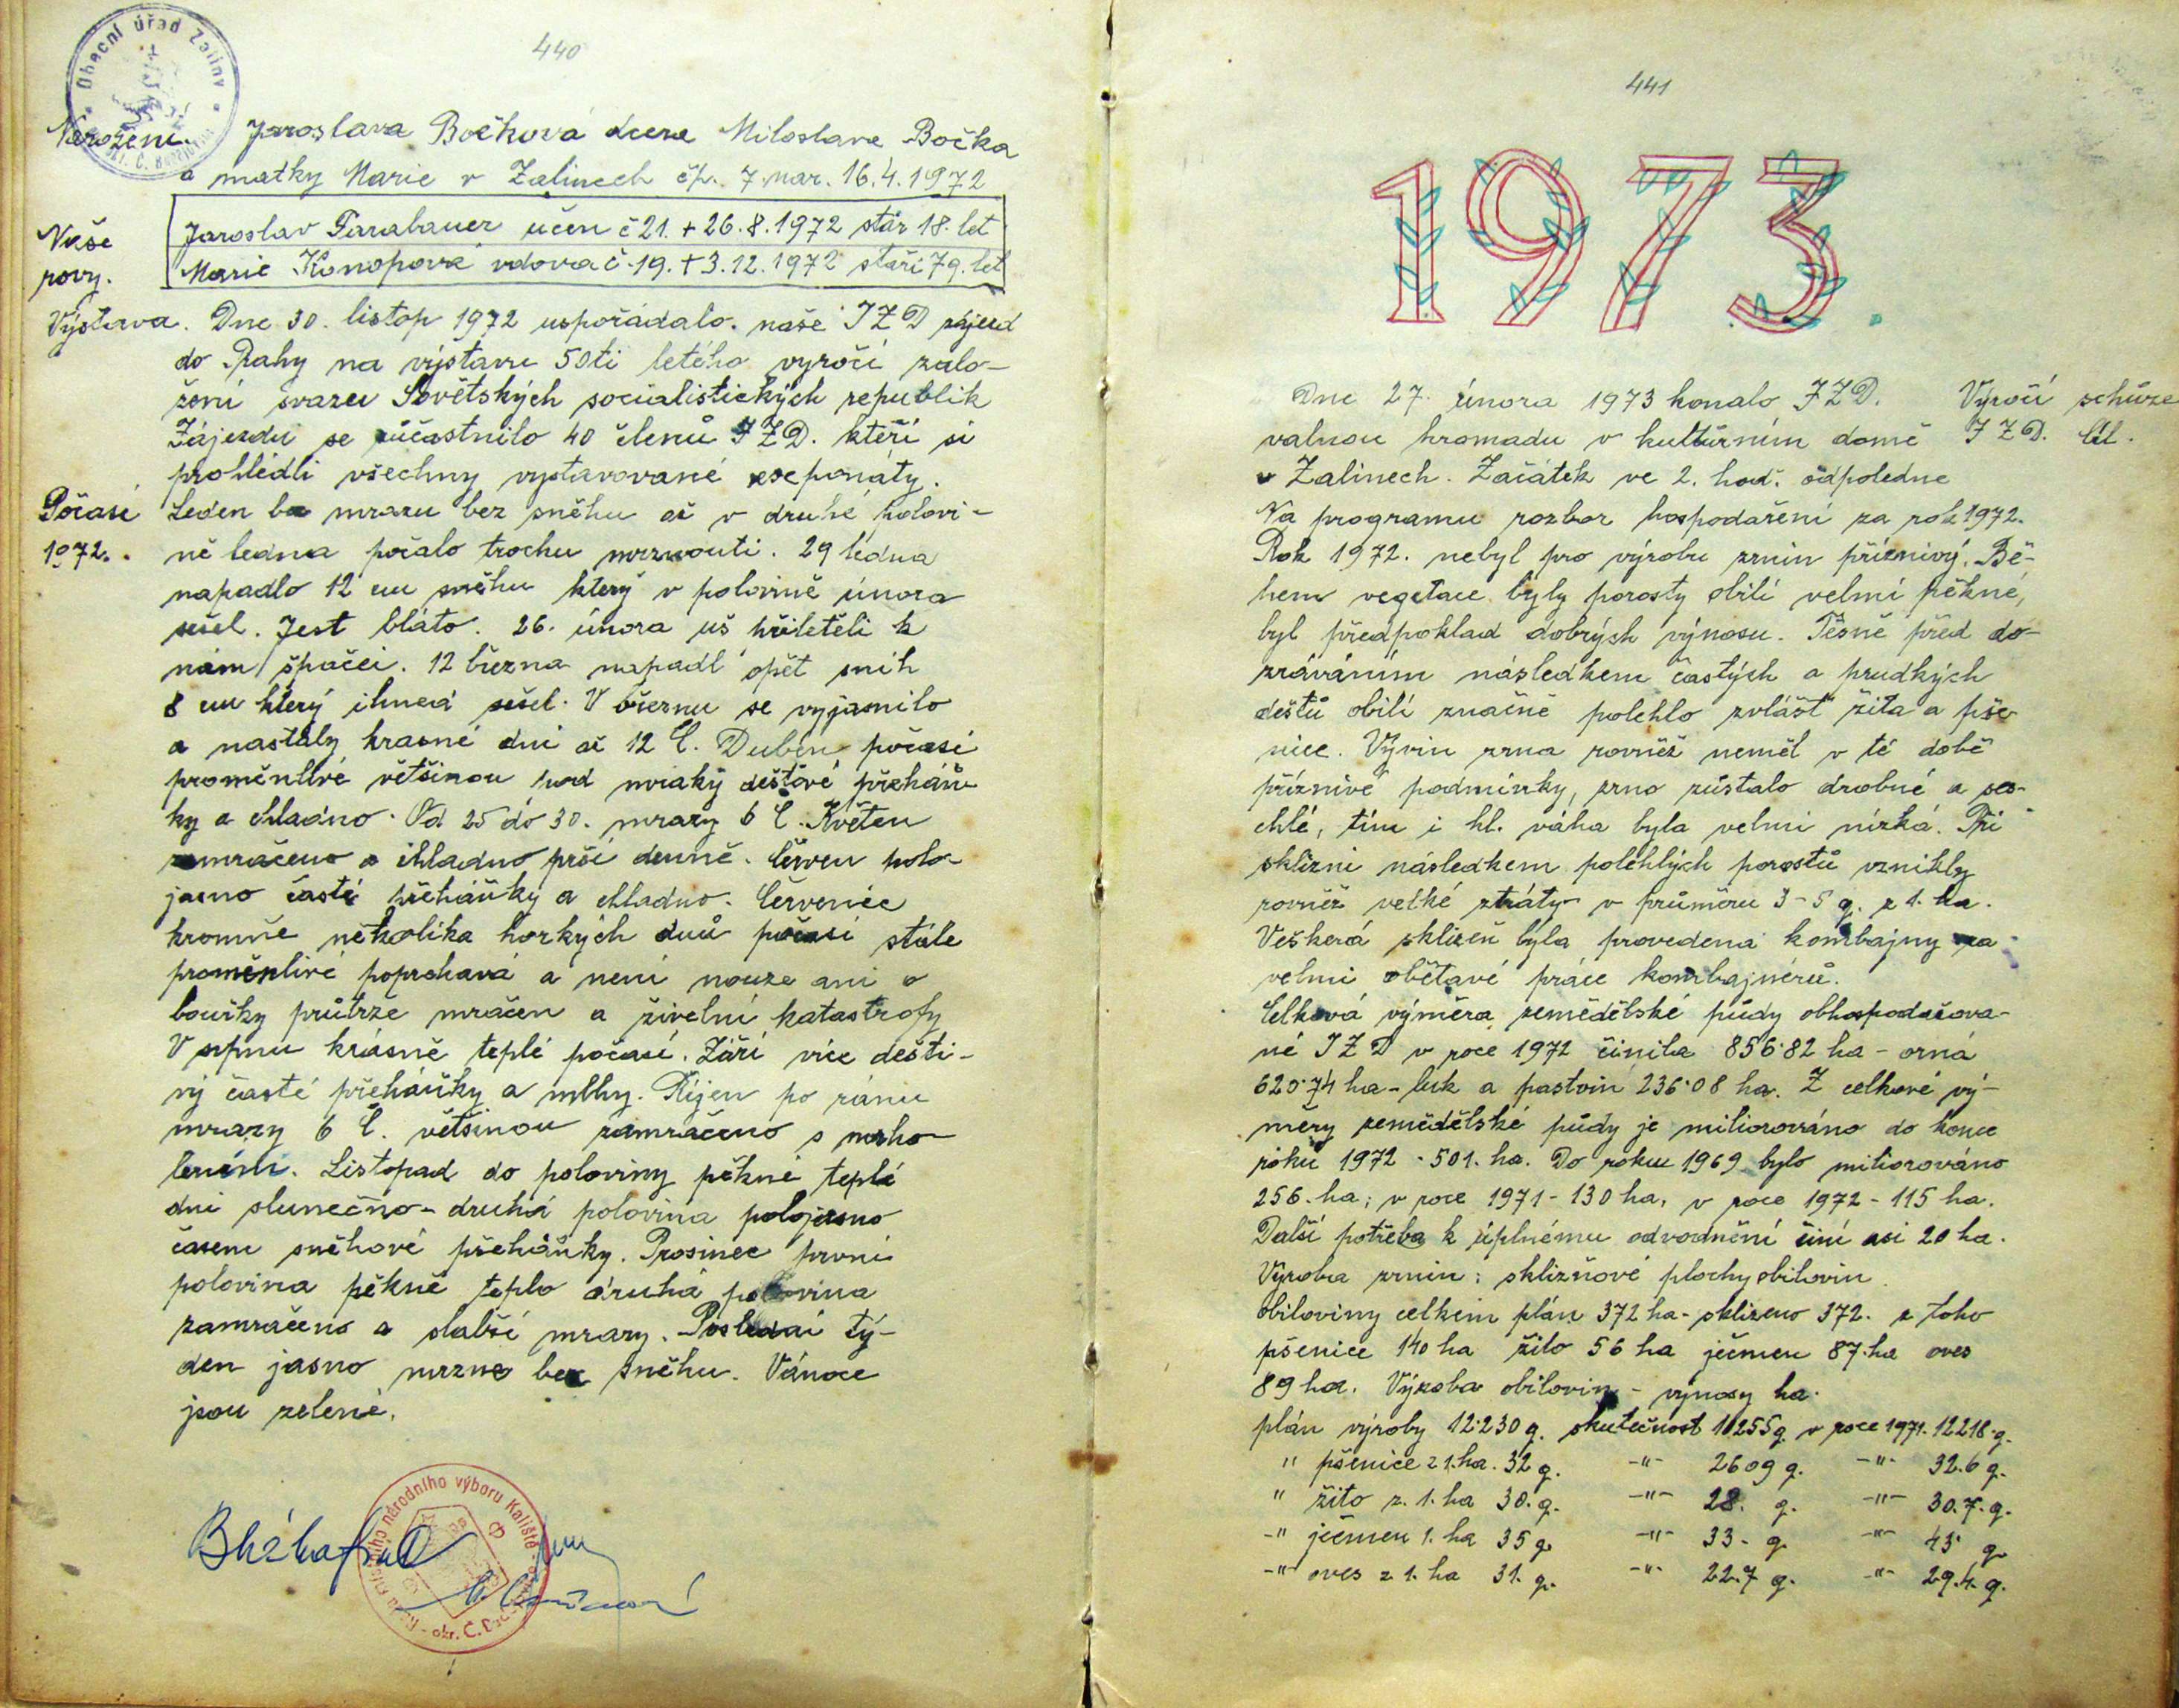 440
Obecní úřad Zaliny
Narození. Jaroslava Bočková dcera Miloslava Bočka
a matky Marie v Zalinech čp. 7. nar. 16.4.1972
Jaroslav Farabauer učen č 21. + 26.8.1972 stár 18. let
Naše
Marie Konopová vdova č. 19. + 3.12.1972 stáří 79. let
rovy.
Výstava. Dne 30. listop 1972 uspořádalo. naše JZD zájezd
do Prahy na výstavu 50ti letého výročí zalo-
žení svazu Sovětských socialistických republik
Zájezdu se zúčastnilo 40 členů JZD. kteří si
prohlédli všechny vystavované exponáty.
Počasí Leden be mrazu bez sněhu až v druhé polovi-
1972. ně ledna počalo trochu mrznouti. 29 ledna
napadlo 12 cm sněhu který v polovině února
sešel. Jest bláto. 26. února už přiletěli k
nám špačci. 12 března napadl opět sníh
8 cm který ihned sešel. V březnu se vyjasnilo
a nastaly krasné dni až 12 C. Duben počasí
proměnlivé většinou pod mraky dešťové přeháň
ky a chladno. Od 25 do 30. mrazy 6 C. Květen
zamračeno a chladno prší denně. Červen polo-
jasno časté přeháňky a chladno. Červenec
kromně několika horkých dnů počasí stále
proměnlivé poprchavá a není nouze ani o
bouřky průtrže mračen a živelní katastrofy
V srpnu krásně teplé počasí. Září více dešti-
vý časté přeháňky a mlhy. Říjen po ránu
mrazy 6 C. většinou zamračeno s mrho-
lením. Listopad do poloviny pěkné teplé
dni slunečno - druhá polovina polojasno
časem sněhové přeháňky. Prosinec první
polovina pěkně teplo druhá polovina
zamračeno a slabší mrazy. Poslední tý-
den jasno mrzne bez sněhu. Vánoce
jsou zelené.
národního výboru Kaliště
okr. Č.
441
1973.
Dne 27. února 1973 konalo JZD. Výročí schůze
valnou hromadu v kulturním domě JZD.
v Zalinech. Začátek ve 2. hod. odpoledne
Na programu rozbor hospodaření za rok 1972.
Rok 1972. nebyl pro výrobu zrnin příznivý. Bě-
hem vegetace byly porosty obilí velmi pěkné,
byl předpoklad dobrých výnosu. Těsně před do-
zráváním následkem častých a prudkých
deštů obilí značně polehlo zvlášť žita a pše
nice. Vývin zrna rovněž neměl v té době
příznivé podmínky, zrno zůstalo drobné a ses-
chlé, tím i hl. váha byla velmi nízká. Při
sklizni následkem polehlých porostů vznikly
rovněž velké ztráty v průměru 3-5 q. z 1. ha.
Veškerá sklizeň byla provedena kombajny za
velmi obětavé práce kombajnérů.
Celková výměra zemědělské půdy obhospodařova-
né JZD v roce 1972 činila 856.82 ha - orná
620.74 ha - luk a pastvin 236.08 ha. Z celkové vý-
měry zemědělské půdy je miliorováno do konce
roku 1972 - 501. ha. Do roku 1969 bylo miliorováno
256. ha; v roce 1971 - 130 ha, v roce 1972 - 115 ha.
Další potřeba k úplnému odvodnění činí asi 20 ha.
Výroba zrnin: sklizňové plochy obilovin
obiloviny celkem plán 372 ha - sklizeno 372. z toho
pšenice 140 ha žito 56 ha ječmen 87. ha oves
89 ha. Výroba obilovin - výnosy ha.
plán výroby 12.230 q. skutečnost 10255 q v roce 1971. 12218 q.
" pšenice z 1. ha. 32 q. -"- 2609 q. -"- 32.6 q.
" žito z. 1. ha 30. q. -"- 28. q. -"- 30.7. q.
-"- ječmen 1. ha 35 q. -"- 33. q. -"- 43 q.
-"- oves z 1. ha 31. q. -"- 22.7 q. -"- 29.4. q.